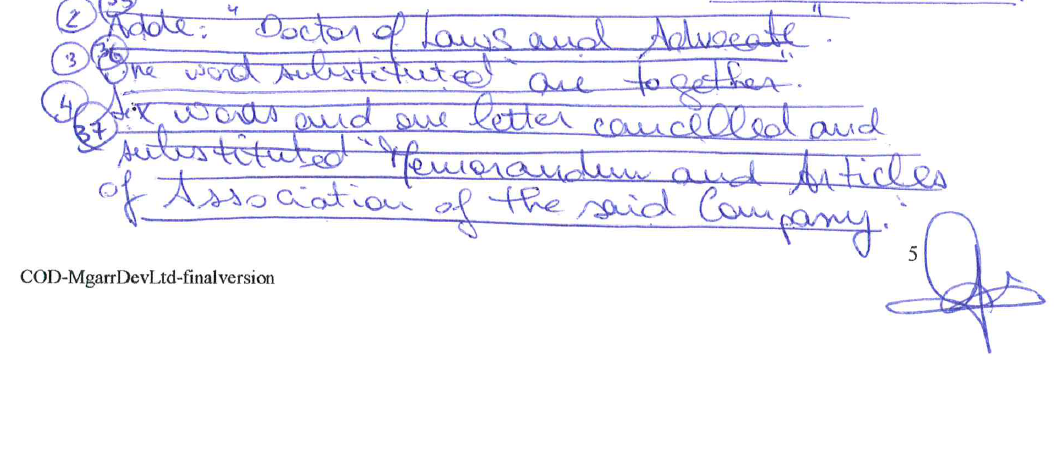 ② 35 Adde: "Doctor of Laws and Advocate".
③ 36 One word substituted "are together".
④ 37 Six words and one letter cancelled and
substituted "Memorandum and Articles
of Association of the said Company."
5
COD-MgarrDevLtd-finalversion